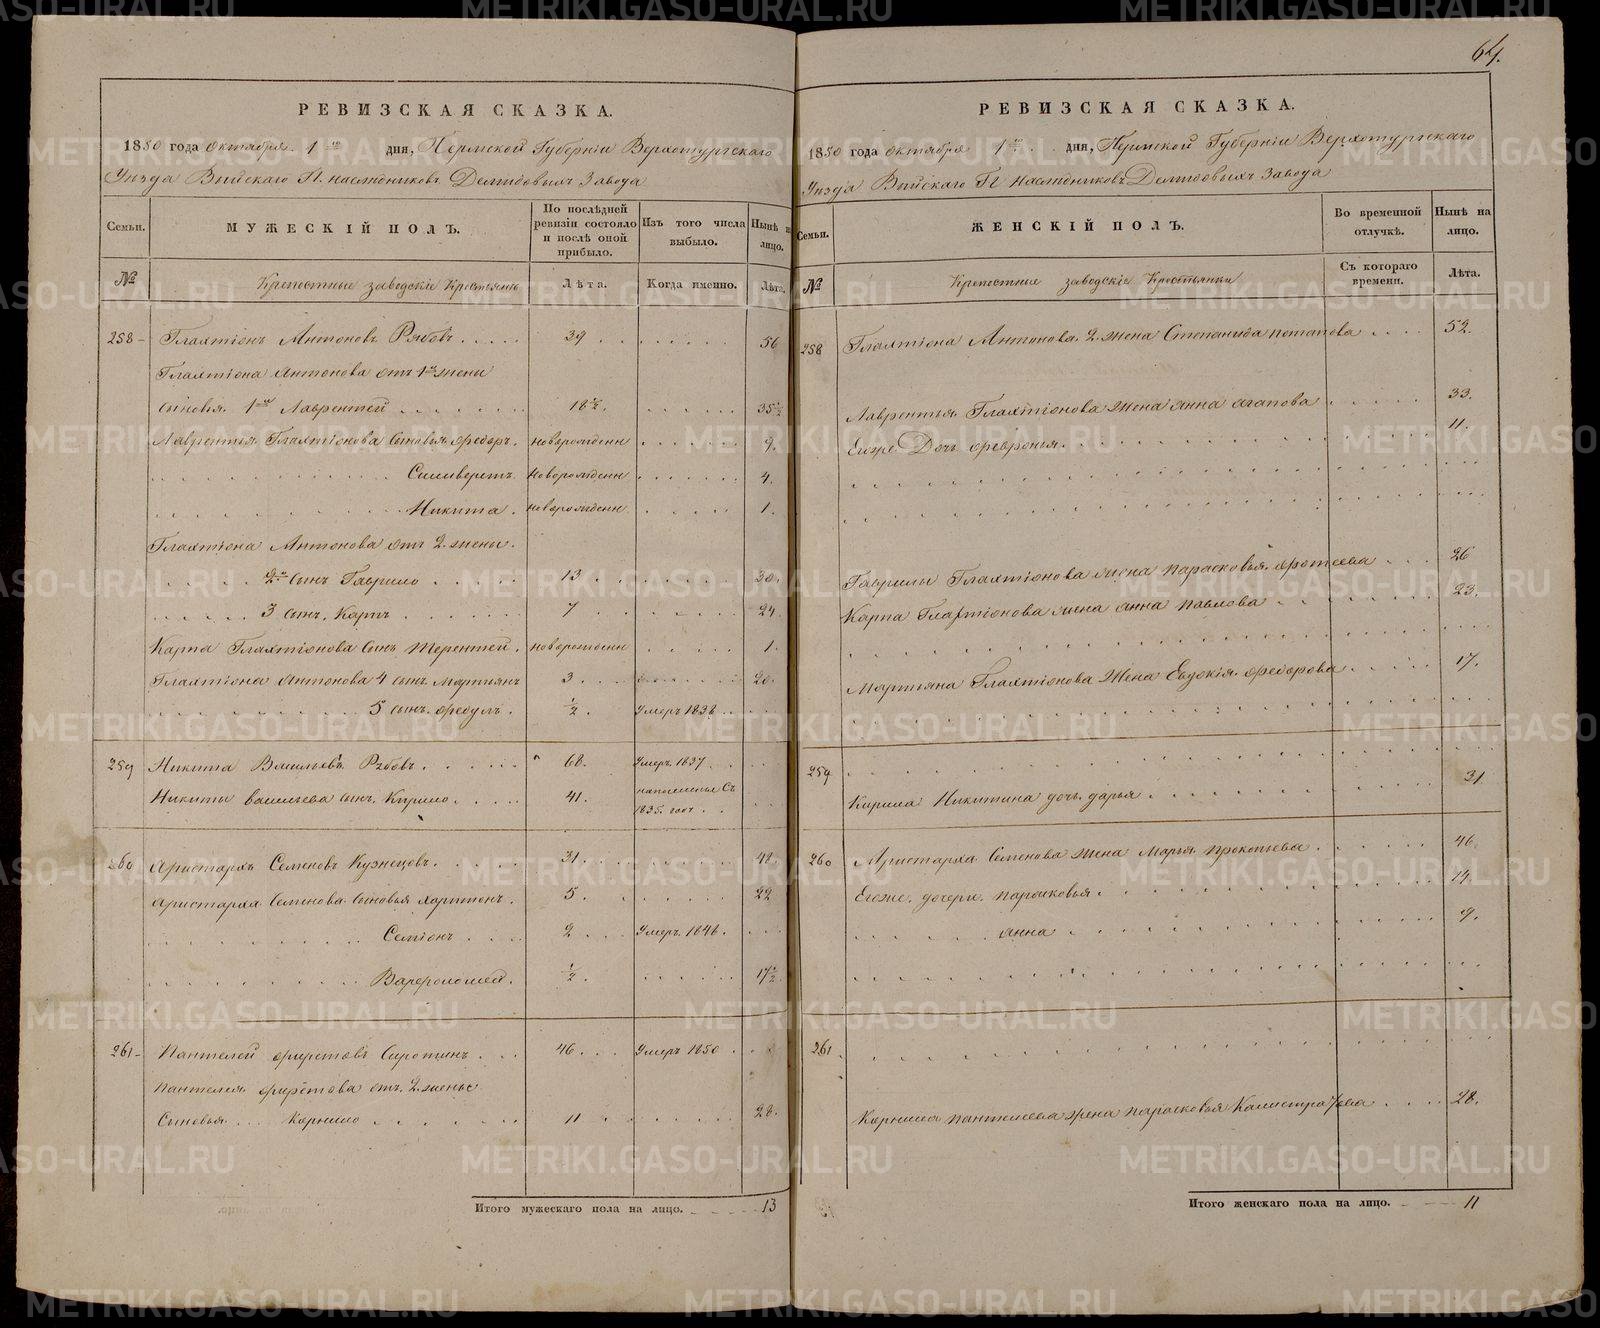 64.
РЕВИЗСКАЯ СКАЗКА.
1850 года октября 1го дня, Пермской Губерніи Верхотурскаго
Уезда Выйскаго Гг. наследниковъ Демидовыхъ Завода
Семьи. МУЖЕСКІЙ ПОЛЪ. По послѣдней ревизіи состояло и послѣ оной прибыло. Изъ того числа выбыло. Нынѣ на лицо.
№ Крепостные заводскіе Крестьяне Лѣта. Когда именно. Лѣта.
258 Галахтіонъ Антоновъ Рябовъ 39 56
Галахтіона Антонова отъ 1й жены
сыновья. 1й Лаврентей 18½. 35½
Лаврентья Галахтіонова Сыновья Ѳедоръ. новорожденн 9.
Силиверстъ новорожденн 4.
Никита. новорожденн 1.
Галахтіона Антонова отъ 2. жены.
2й сынъ Гаврило 13 30.
3 сынъ. Карпъ 7 24
Карпа Галахтіонова Сынъ Терентей. новорожденн 1.
Галахтіона Антонова 4 сынъ Мартьянъ 3. 20.
5 сынъ. Ѳедулъ. ½. Умеръ 1838
259 Никита Васильевъ Рябовъ 68. Умеръ. 1837
Никиты васильева сынъ. Кирило. 41. съ 1835. года
260 Аристархъ Семеновъ Кузнецовъ. 31. 42.
Аристарха Семенова Сыновья Харитонъ. 5. 22
Семіонъ 2 Умеръ. 1846.
Варѳоломей. ½. 17½
261 Пантелей Ѳирсовъ Сиротинъ 46 Умеръ 1850
Пантелея отъ 2. жены
Сыновья Корнило 11 28.
Итого мужескаго пола на лицо. 13
РЕВИЗСКАЯ СКАЗКА.
1850 года октября 1го дня, Пермской Губерніи Верхотурскаго
Уезда Выйскаго Гг наследниковъ Демидовыхъ Завода
Семьи. ЖЕНСКІЙ ПОЛЪ. Во временной отлучкѣ. Нынѣ на лицо.
№ Крепостные заводскіе Крестьянки Съ котораго времени. Лѣта.
258 Галахтіона Антонова 2. жена Степанида потапова 52.
Лаврентья Галахтіонова жена анна агапова 33.
Егоже Дочь Ѳевронья. 11.
Гаврилы Галахтіонова жена парасковья 26
Карпа Галахтіонова жена анна павлова 23.
Мартьяна Галахтіонова жена Евдокія Ѳедорова 17.
259
Кирила Никитина дочь дарья 31
260 Аристарха Семенова жена Марья прокопьева 46.
Егоже. дочери. парасковья. 14.
анна 9.
261
Корнила пантелеева жена парасковья Калистратова 28.
Итого женскаго пола на лицо. 11
METRIKI.GASO-URAL.RU